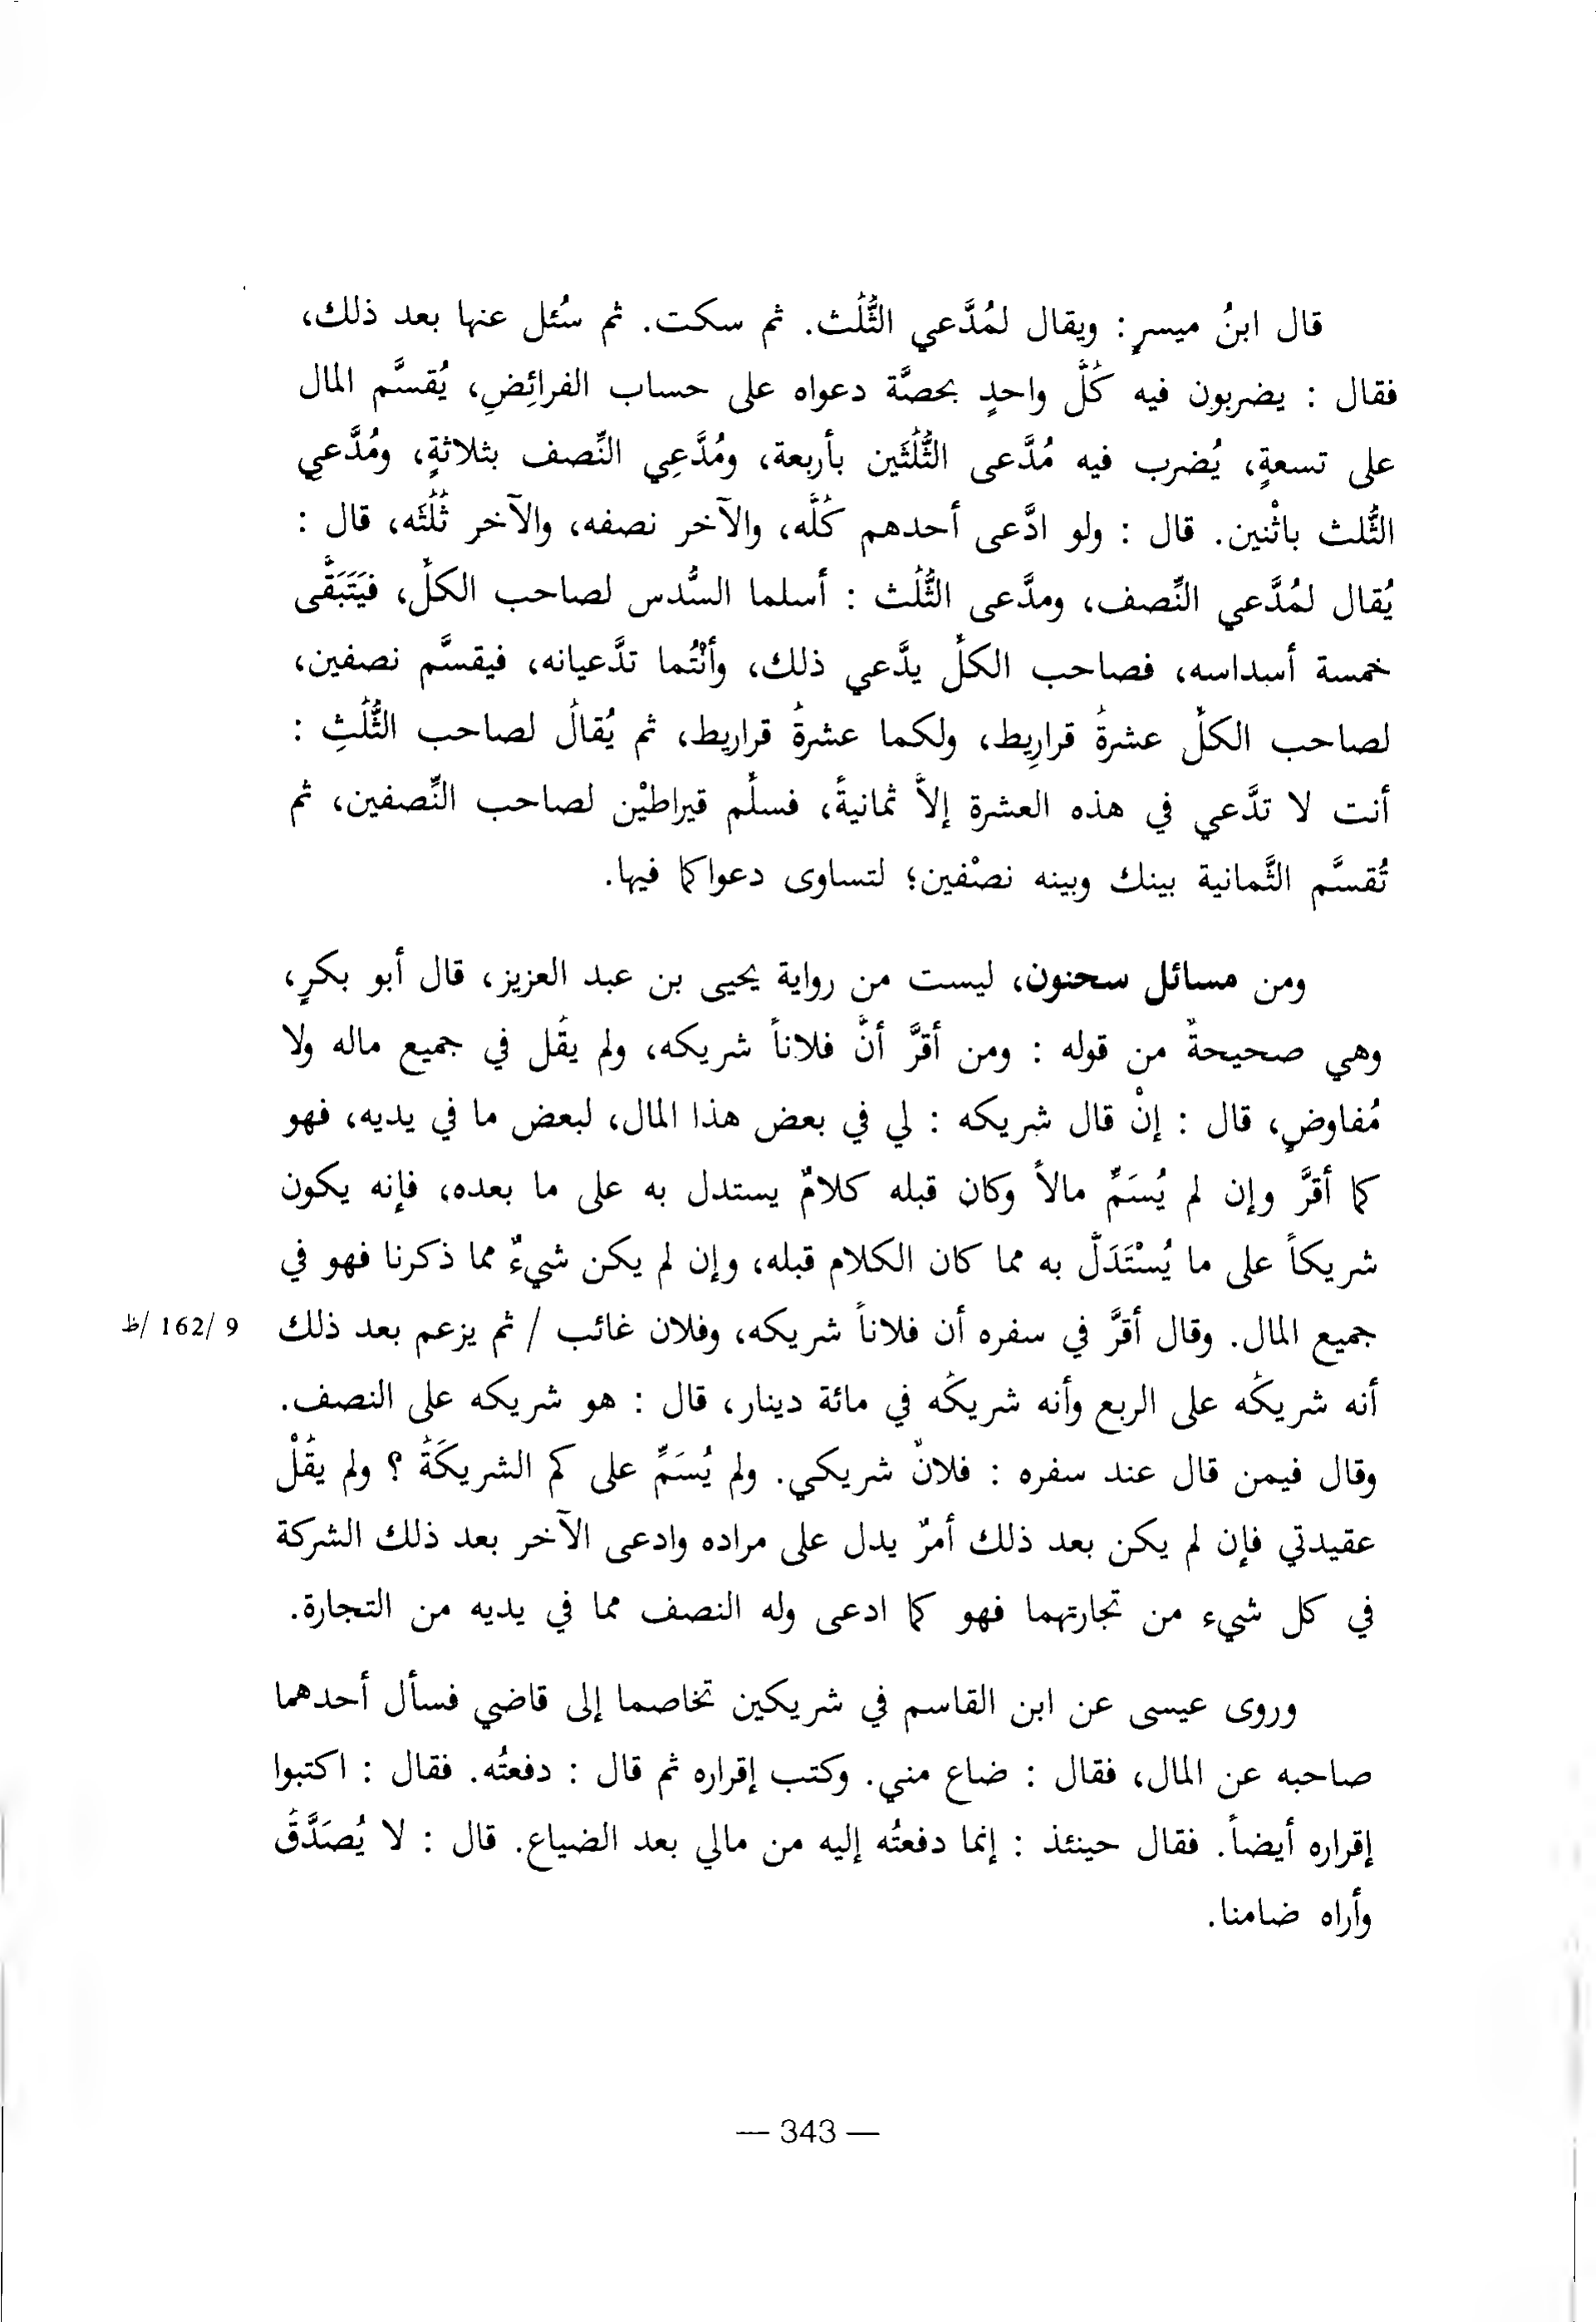 قال ابنُ ميسرٍ : ويقال لمُدَّعي الثُّلُث. ثم سكت. ثم سُئل عنها بعد ذلك،
فقال : يضربون فيه كُلَّ واحدٍ بحصَّة دعواه على حساب الفرائِضِ، يُقسَّم المال
على تسعةٍ، يُضرب فيه مُدَّعى الثُّلُثَين بأربعة، ومُدَّعِي النِّصف بثلاثةٍ، ومُدَّعي
الثُّلث باثْنين. قال : ولو ادَّعى أحدهم كُلَّه، والآخر نصفه، والآخر ثُلُثَه، قال :
يُقال لمُدَّعي النِّصف، ومدَّعى الثُّلُث : أسلما السُّدس لصاحب الكلِّ، فيَتَبَقَّى
خمسة أسداسه، فصاحب الكلِّ يدَّعي ذلك، وأنْتُما تدَّعيانه، فيقسَّم نصفين،
لصاحب الكلِّ عشرةُ قرارِيط، ولكما عشرةُ قراريط، ثم يُقالُ لصاحب الثُّلُثِ :
أنت لا تدَّعي في هذه العشرة إلاَّ ثمانيةً، فسلِّم قيراطيْن لصاحب النِّصفين، ثم
تُقسَّم الثَّمانية بينك وبينه نصْفين؛ لتساوى دعواكما فيها.
ومن مسائل سحنون، ليست من رواية يحيى بن عبد العزيز، قال أبو بكرٍ،
وهي صحيحةٌ من قوله : ومن أقرَّ أنَّ فلاناً شريكه، ولم يقُل في جميع ماله ولا
مُفاوضٍ، قال : إنْ قال شريكه : لي في بعض هذا المال، لبعض ما في يديه، فهو
كما أقرَّ وإن لم يُسَمِّ مالاً وكان قبله كلامٌ يستدل به على ما بعده، فإنه يكون
شريكاً على ما يُسْتَدَلَّ به مما كان الكلام قبله، وإن لم يكن شيءٌ مما ذكرنا فهو في
جميع المال. وقال أقرَّ في سفره أن فلاناً شريكه، وفلان غائب / ثم يزعم بعد ذلك 9 /162 /ظ
أنه شريكُه على الربع وأنه شريكُه في مائة دينار، قال : هو شريكه على النصف.
وقال فيمن قال عند سفره : فلانٌ شريكي. ولم يُسَمِّ على كم الشريكَةُ ؟ ولم يقُلْ
عقيدتي فإن لم يكن بعد ذلك أمرٌ يدل على مراده وادعى الآخر بعد ذلك الشركة
في كل شيء من تجارتهما فهو كما ادعى وله النصف مما في يديه من التجارة.
وروى عيسى عن ابن القاسم في شريكين تخاصما إلى قاضي فسأل أحدهما
صاحبه عن المال، فقال : ضاع مني. وكتب إقراره ثم قال : دفعتُه. فقال : اكتبوا
إقراره أيضاً. فقال حينئذ : إنما دفعتُه إليه من مالي بعد الضياع. قال : لا يُصَدَّقُ
وأراه ضامنا.
— 343 —